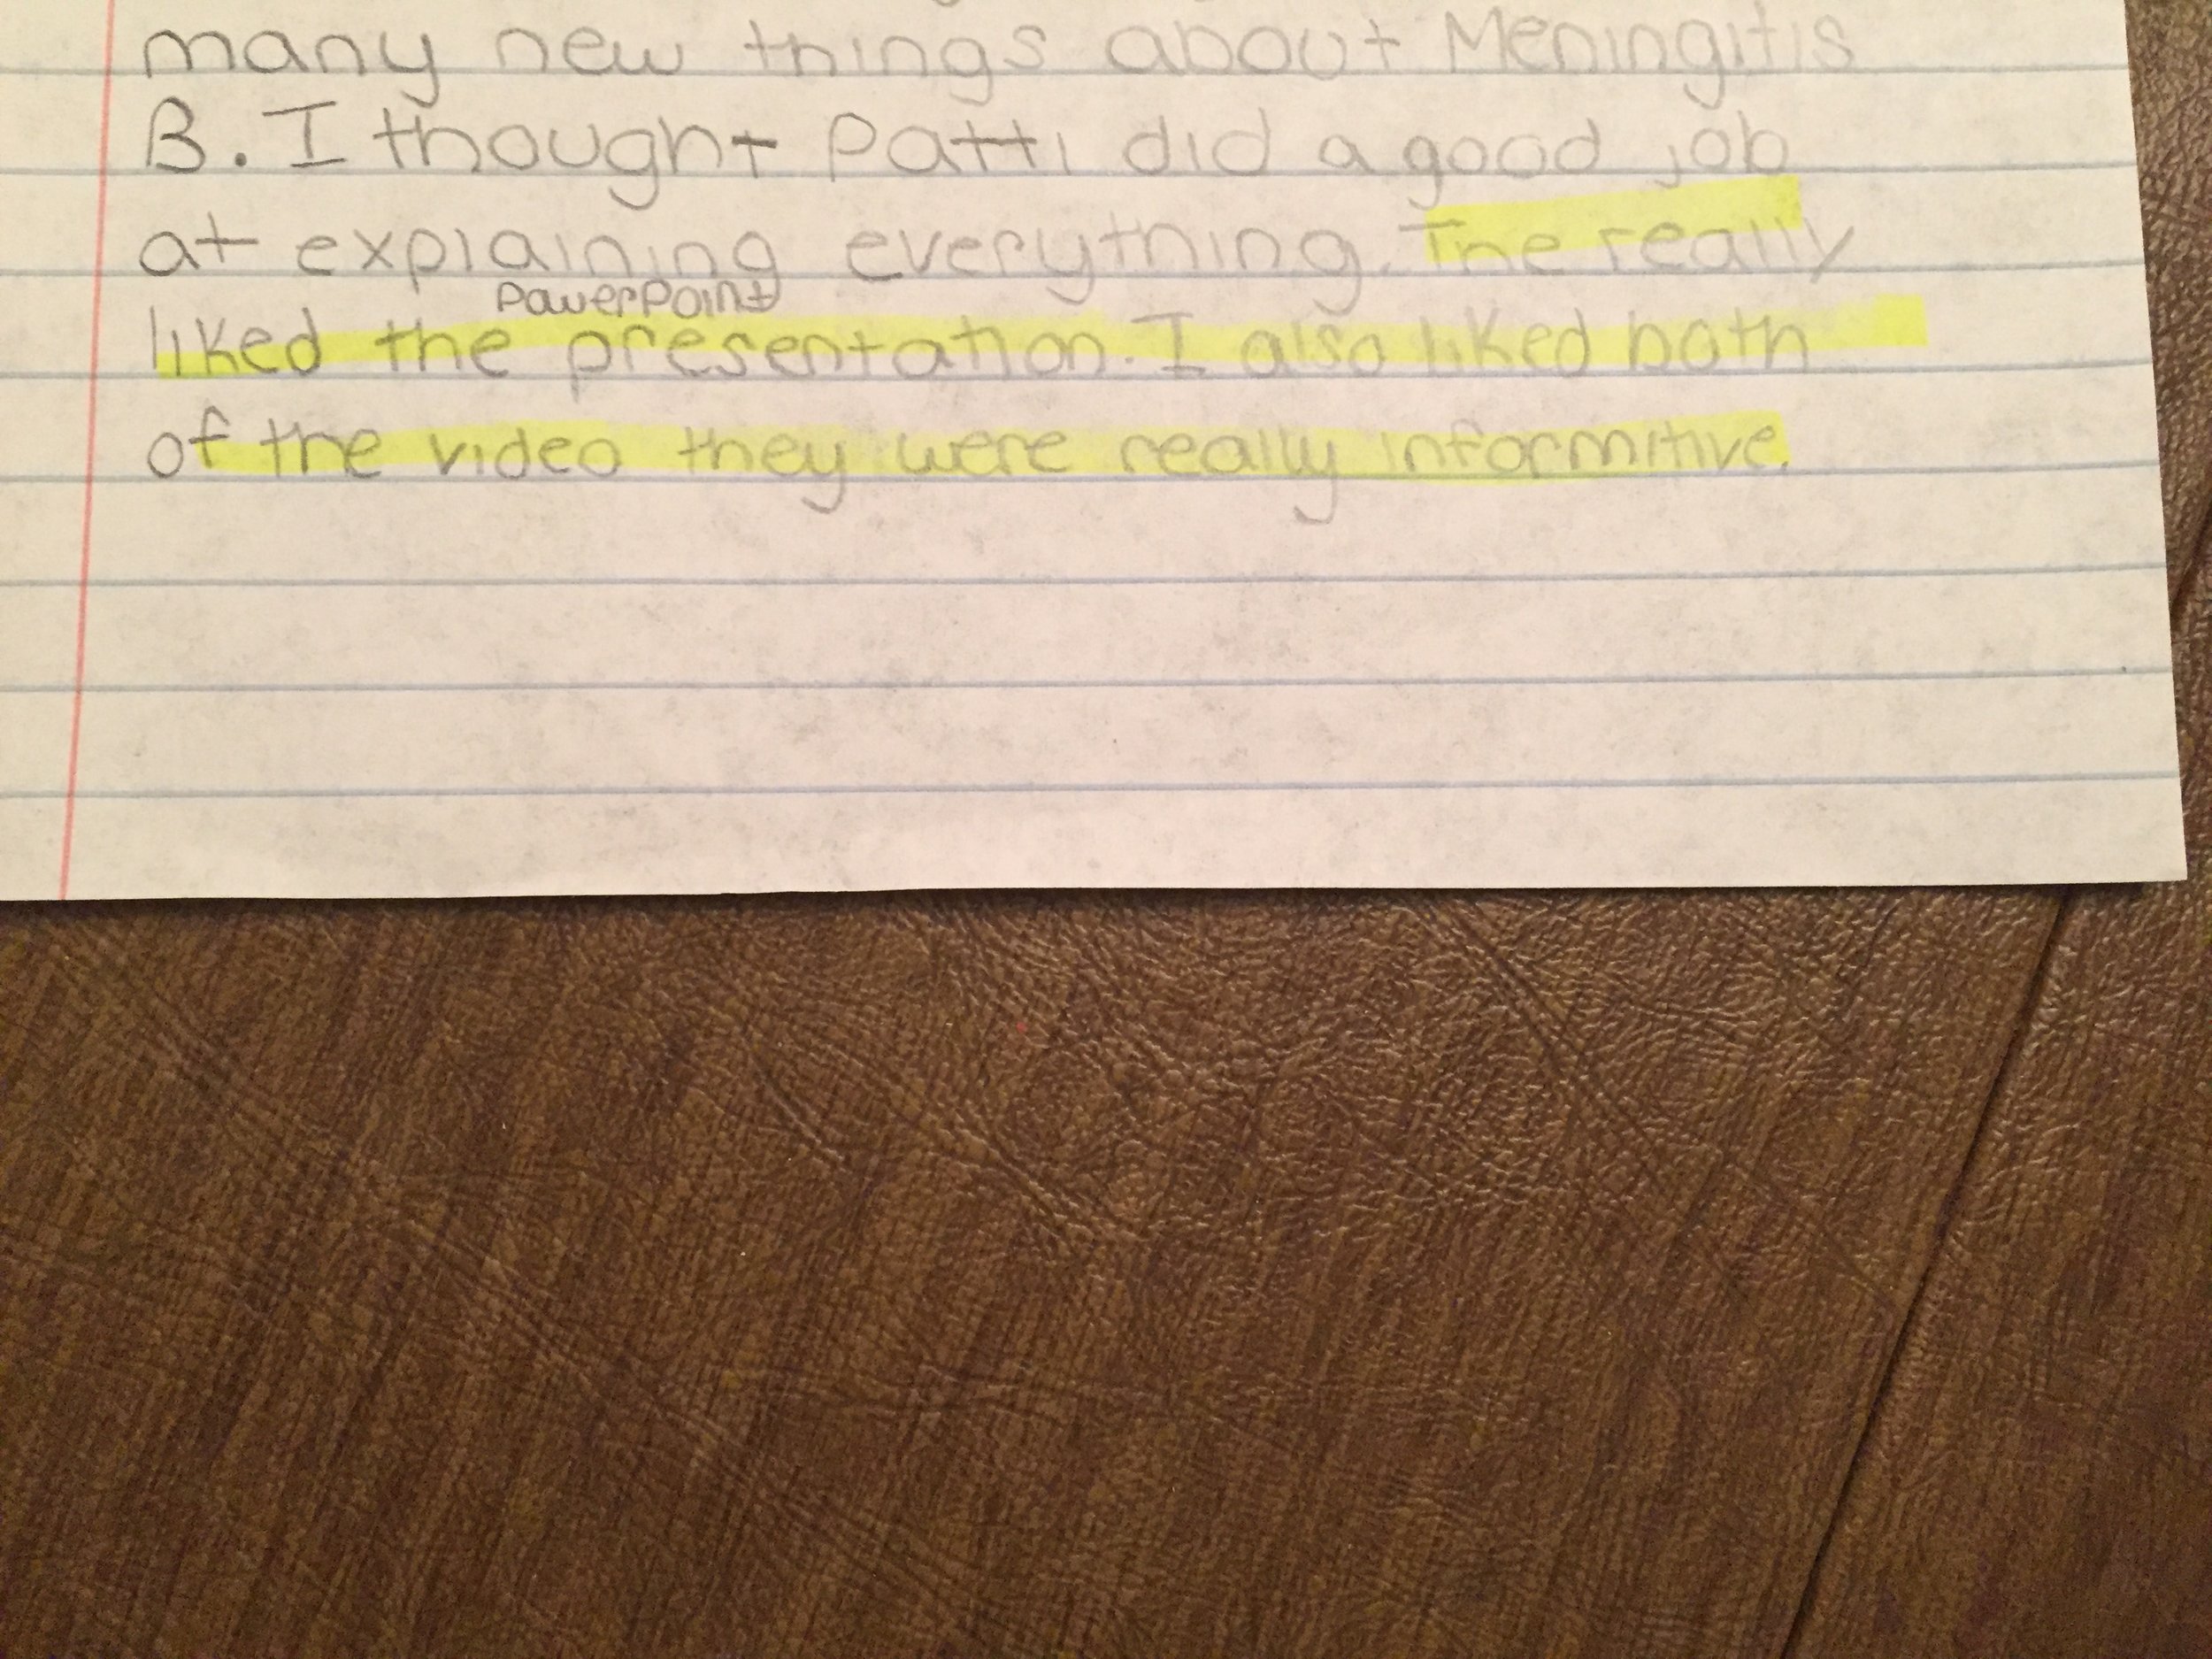 many new things about Meningitis
B. I thought Patti did a good job
at explaining everything. The really
PowerPoint
liked the presentation. I also liked both
of the video they were really informitive.